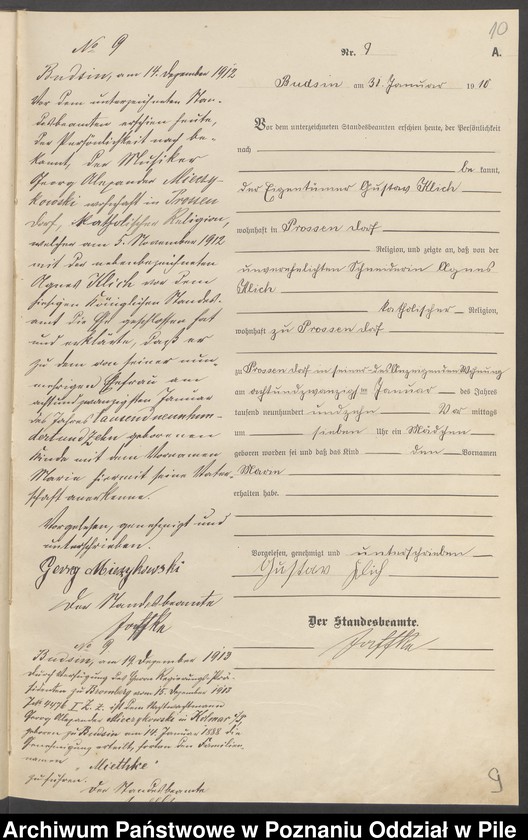 10
No 9
Budsin, am 14. Dezember 1912
Vor dem unterzeichneten Stan-
desbeamten erschien heute,
der Persönlichkeit nach be-
kannt, der Musiker
Georg Alexander Mieczy-
kowski wohnhaft in Prossen
dorf, katholischer Religion,
welcher am 5. November 1912
mit der nebenbezeichneten
Agnes Klich vor dem
hiesigen Königlichen Standes-
amt die Ehe geschlossen hat
und erklärte, daß er
zu dem von seiner nun-
mehrigen Ehefrau am
achtundzwanzigsten Januar
des Jahres Tausendneunhun-
dertundzehn geborenen
Kinde mit dem Vornamen
Maria hiermit seine Vater-
schaft anerkenne.
Vorgelesen, genehmigt und
unterschrieben.
Georg Mieczykowski
Der Standesbeamte
Jaffke
No 9
Budsin, am 19. Dezember 1913
Durch Verfügung des Herrn Regierungs-Prä-
sidenten zu Bromberg vom 15. Dezember 1913
4476 I. ist dem
Georg Alexander Mieczykowski in Kolmar i/P.
geboren zu Budsin am 14. Januar 1888 die
Genehmigung erteilt, fortan den Familien-
namen „Miethke“
zu führen.
Der Standesbeamte
Nr. 9
A.
Budsin am 31. Januar 1910
Vor dem unterzeichneten Standesbeamten erschien heute, der Persönlichkeit
nach
be kannt,
der Eigentümer Gustav Klich
wohnhaft in Prossendorf
Religion, und zeigte an, daß von der
unverehelichten Schneiderin Agnes
Klich
katholischer Religion,
wohnhaft zu Prossendorf
zu Prossendorf in seiner des Anzeigenden Wohnung
am achtundzwanzigsten Januar des Jahres
tausend neunhundert undzehn Vor mittags
um sieben Uhr ein Mädchen
geboren worden sei und daß das Kind den Vornamen
Maria
erhalten habe.
Vorgelesen, genehmigt und unterschrieben
Gustav Klich
Der Standesbeamte.
Jaffke
9
Archiwum Państwowe w Poznaniu Oddział w Pile